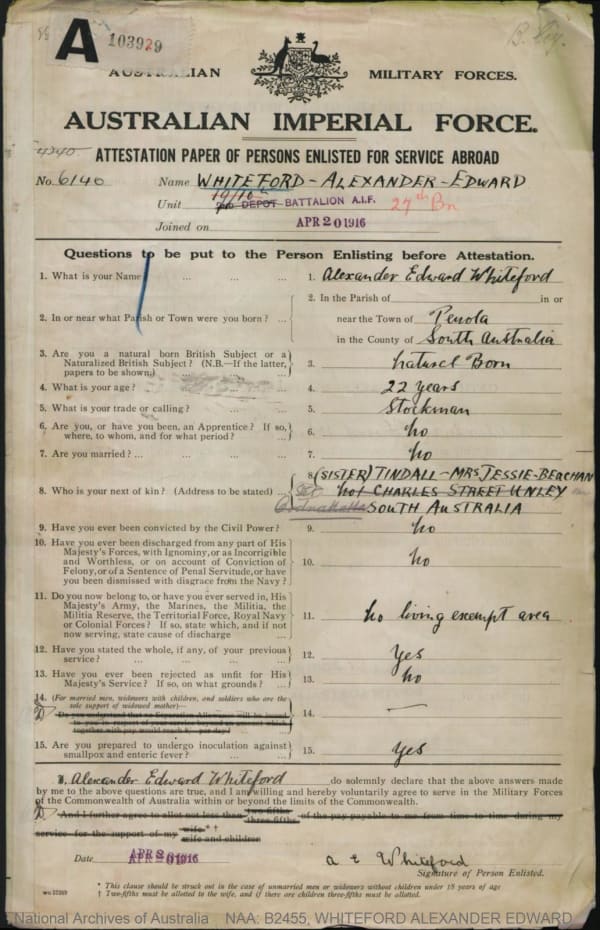 A 103929
B. Dep.
AUSTRALIAN MILITARY FORCES.
AUSTRALIAN IMPERIAL FORCE.
ATTESTATION PAPER OF PERSONS ENLISTED FOR SERVICE ABROAD
No. 6140 Name WHITEFORD - ALEXANDER - EDWARD
19/10th
Unit DEPOT BATTALION A.I.F. 27th Bn
Joined on APR 20 1916
Questions to be put to the Person Enlisting before Attestation.
1. What is your Name? ... ... ... 1. Alexander Edward Whiteford
2. In the Parish of in or
2. In or near what Parish or Town were you born? ... near the Town of Penola
in the County of South Australia
3. Are you a natural born British Subject or a
Naturalized British Subject? (N.B.—If the latter, 3. Natural Born
papers to be shown.) ...
4. What is your age? ... 4. 22 years
5. What is your trade or calling? ... ... 5. Stockman
6. Are you, or have you been, an Apprentice? If so,
where, to whom, and for what period? ... 6. no
7. Are you married? ... ... ... 7. no
8. (SISTER) TINDALL - MRS JESSIE - BEACHAN
8. Who is your next of kin? (Address to be stated) ... CHARLES STREET UNLEY
SOUTH AUSTRALIA
9. Have you ever been convicted by the Civil Power? 9. no
10. Have you ever been discharged from any part of His
Majesty's Forces, with Ignominy, or as Incorrigible
and Worthless, or on account of Conviction of 10. no
Felony, or of a Sentence of Penal Servitude, or have
you been dismissed with disgrace from the Navy?
11. Do you now belong to, or have you ever served in, His
Majesty's Army, the Marines, the Militia, the
Militia Reserve, the Territorial Force, Royal Navy 11. no living exempt area
or Colonial Forces? If so, state which, and if not
now serving, state cause of discharge ...
12. Have you stated the whole, if any, of your previous
service? ... ... ... ... 12. Yes
13. Have you ever been rejected as unfit for His
Majesty's Service? If so, on what grounds? ... 13. no
14. (For married men, widowers with children, and soldiers who are the
sole support of widowed mother)—
Do you understand that no Separation Allowance will be issued 14. —
to you in respect of your service beyond an amount which
together with pay would reach per day?
15. Are you prepared to undergo inoculation against
smallpox and enteric fever? ... ... 15. Yes
I, Alexander Edward Whiteford do solemnly declare that the above answers made
by me to the above questions are true, and I am willing and hereby voluntarily agree to serve in the Military Forces
of the Commonwealth of Australia within or beyond the limits of the Commonwealth.
And I further agree to allot not less than two-fifths three-fifths of the pay payable to me from time to time during my
service for the support of my wife*† wife and children
Date APR 20 1916 A E Whiteford
Signature of Person Enlisted.
* This clause should be struck out in the case of unmarried men or widowers without children under 18 years of age
† Two-fifths must be allotted to the wife, and if there are children three-fifths must be allotted.
National Archives of Australia NAA: B2455, WHITEFORD ALEXANDER EDWARD